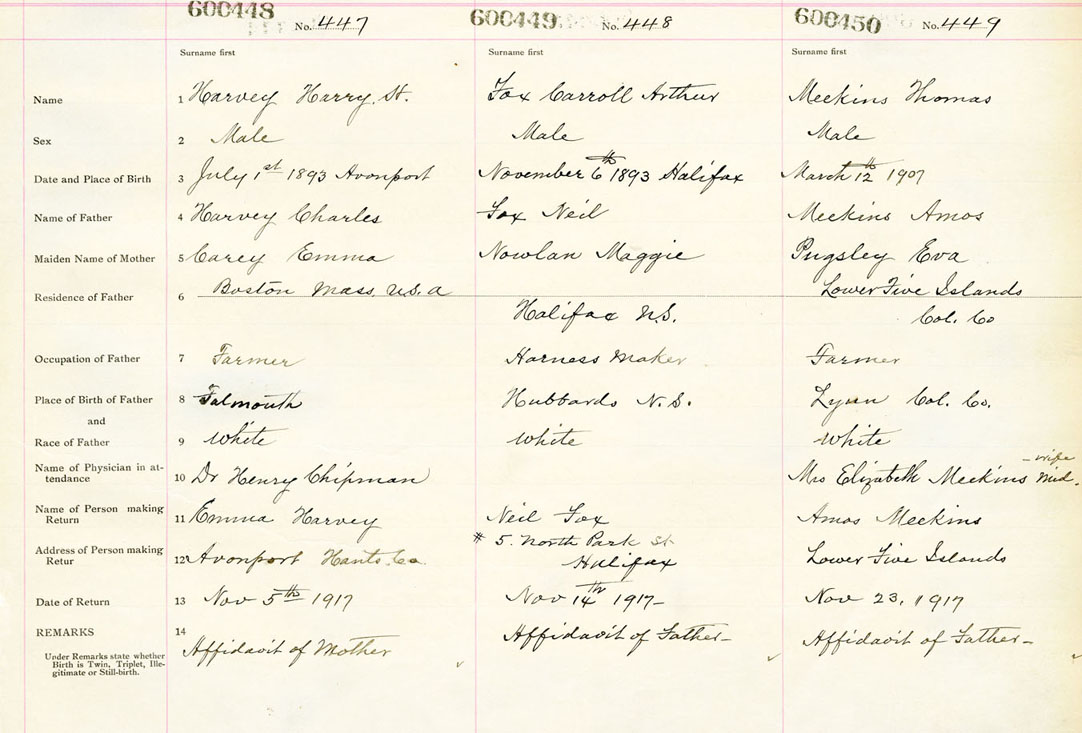 600448 No. 447 600449 No. 448 600450 No. 449
Surname first Surname first Surname first
Name 1 Harvey Harry St. Fox Carroll Arthur Meekins Thomas
Sex 2 Male Male Male
Date and Place of Birth 3 July 1st 1893 Avonport November 6th 1893 Halifax March 12th 1907
Name of Father 4 Harvey Charles Fox Neil Meekins Amos
Maiden Name of Mother 5 Carey Emma Nowlan Maggie Pugsley Eva
Residence of Father 6 Boston Mass. U.S.A Halifax N.S. Lower Five Islands
Col. Co
Occupation of Father 7 Farmer Harness Maker Farmer
Place of Birth of Father 8 Falmouth Hubbards N.S. Lynn Col. Co.
and
Race of Father 9 White White White
Name of Physician in at-
tendance 10 Dr Henry Chipman Mrs Elizabeth Meekins Mid-wife
Name of Person making
Return 11 Emma Harvey Neil Fox Amos Meekins
Address of Person making
Retur 12 Avonport Hants. Co. # 5. North Park St Lower Five Islands
Halifax
Date of Return 13 Nov 5th 1917 Nov 14th 1917- Nov 23, 1917
REMARKS 14 Affidavit of Mother Affidavit of Father- Affidavit of Father-
Under Remarks state whether
Birth is Twin, Triplet, Ille-
gitimate or Still-birth.